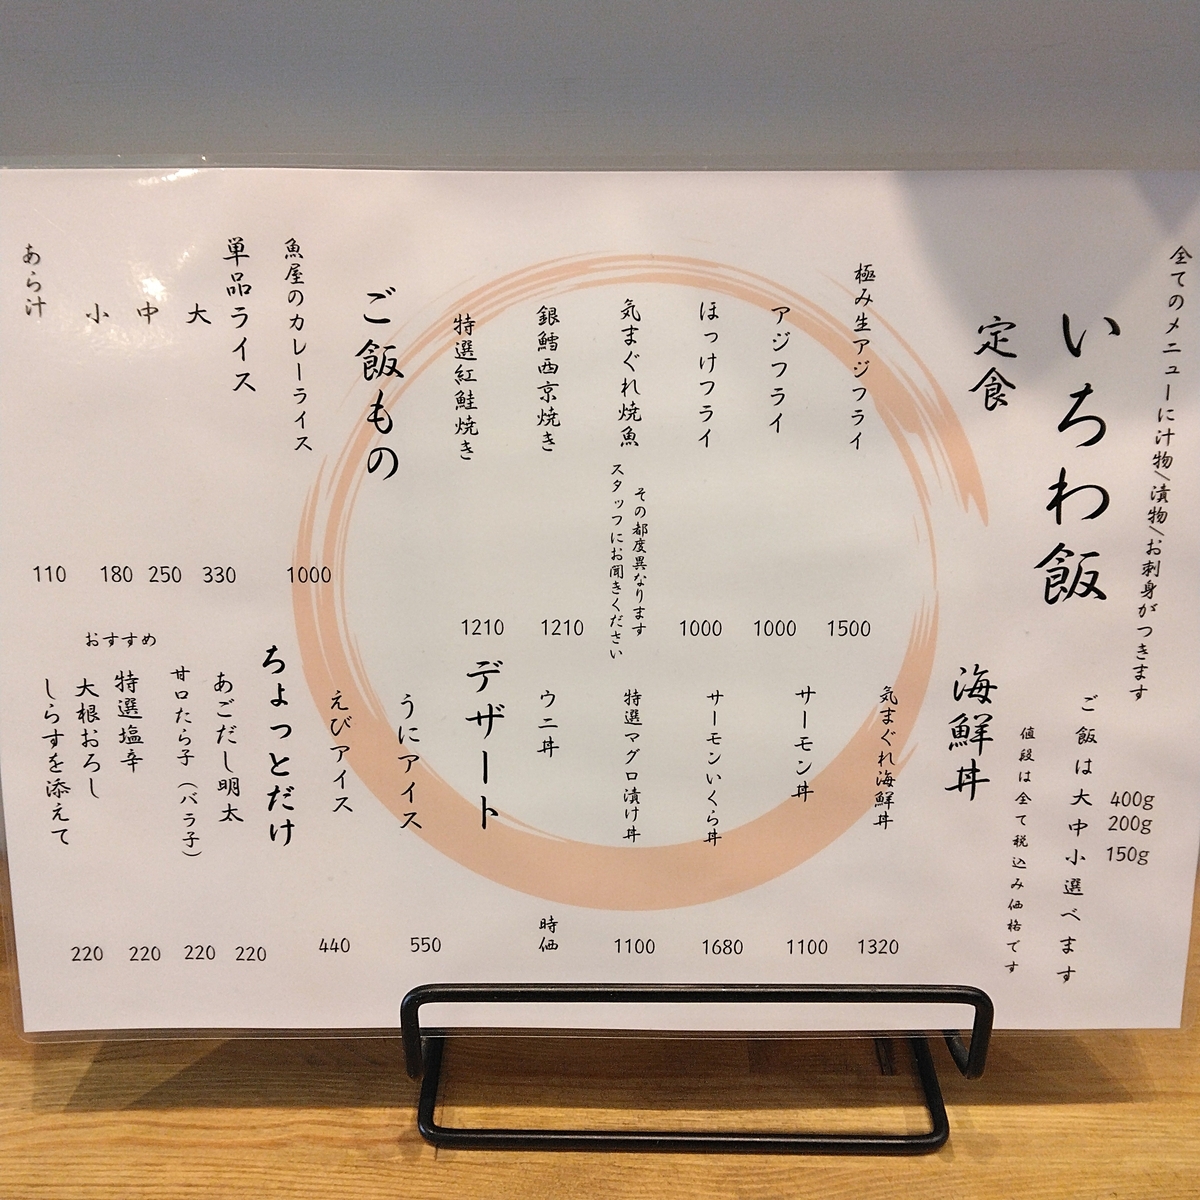 全てのメニューに汁物/漬物/お刺身がつきます
いちわ飯
ご飯は大中小選べます
400g
200g
150g
値段は全て税込み価格です
定食
極み生アジフライ
1500
アジフライ
1000
ほっけフライ
1000
気まぐれ焼魚
その都度異なります
スタッフにお聞きください
銀鱈西京焼き
1210
特選紅鮭焼き
1210
海鮮丼
気まぐれ海鮮丼
1320
サーモン丼
1100
サーモンいくら丼
1680
特選マグロ漬け丼
1100
ウニ丼
時価
ご飯もの
魚屋のカレーライス
1000
単品ライス
大
330
中
250
小
180
あら汁
110
デザート
うにアイス
550
えびアイス
440
ちょっとだけ
あごだし明太
220
甘口たら子(バラ子)
220
おすすめ
特選塩辛
220
大根おろし
しらすを添えて
220